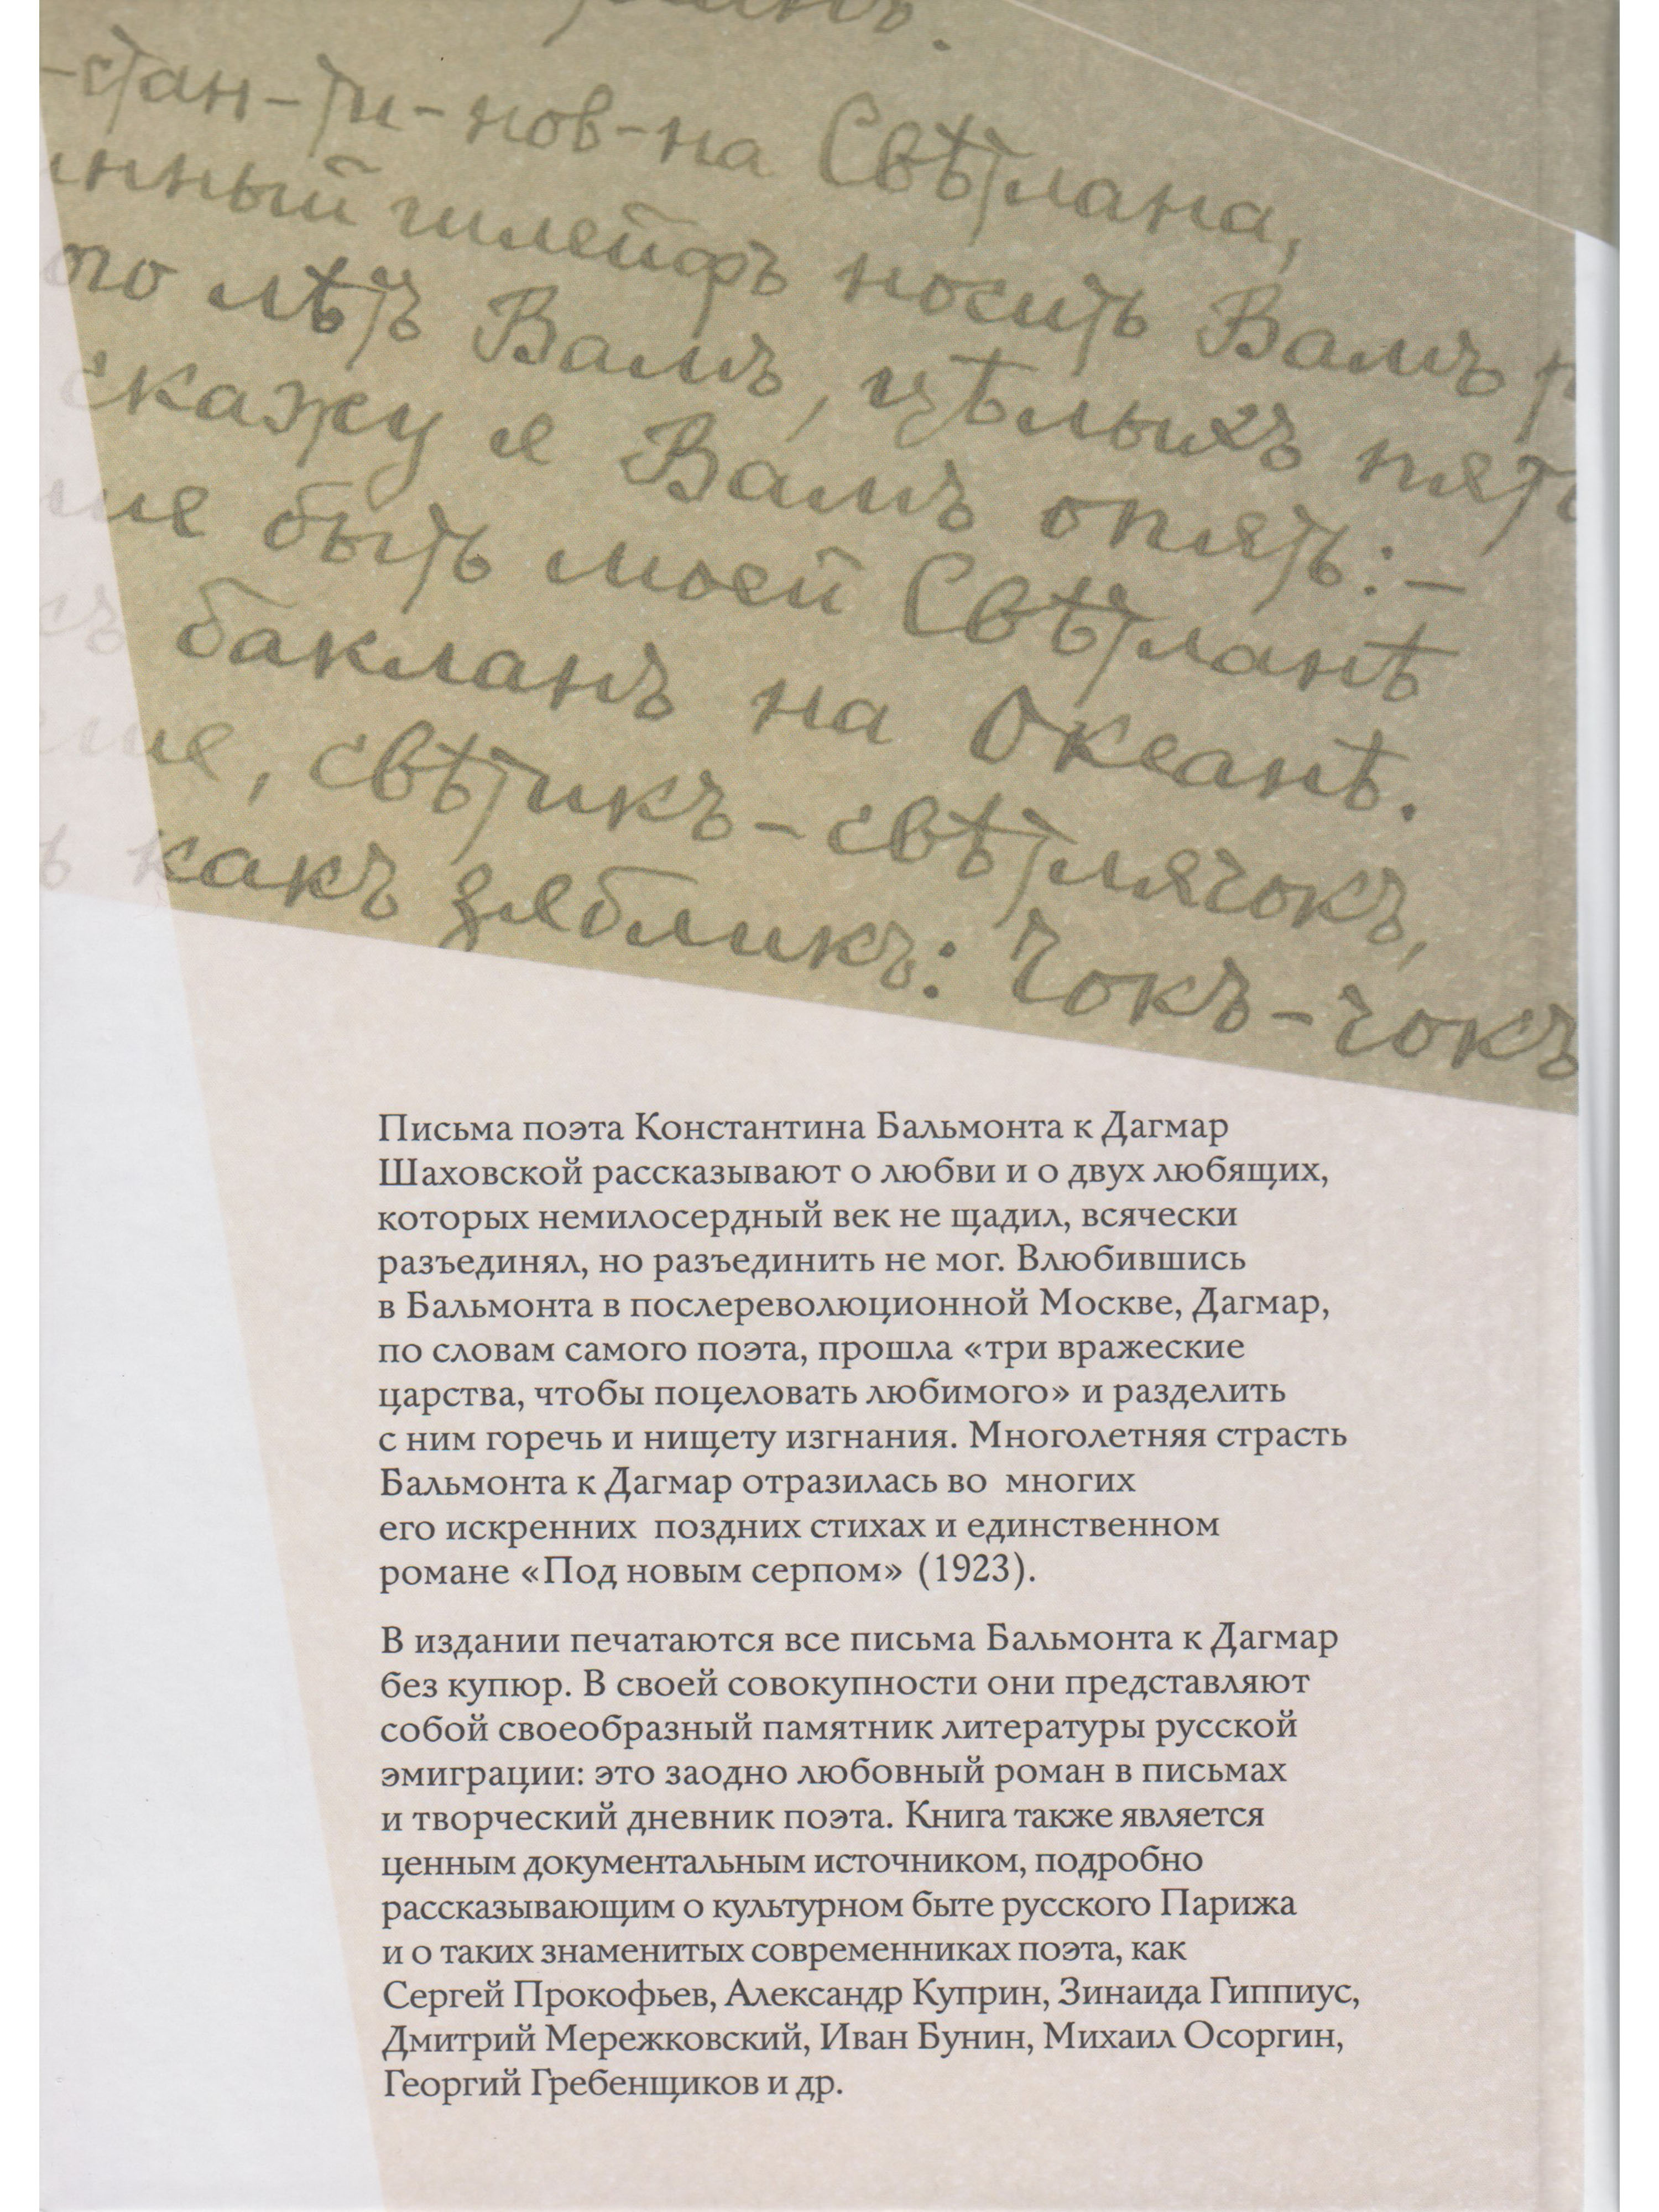 -стан-ти-нов-на Свѣтлана,
шлейфъ носить Вамъ
лѣтъ Вамъ, цѣлыхъ пять
скажу я Вамъ опять: –
быть моей Свѣтланѣ
бакланъ на Океанѣ.
, свѣтикъ-свѣтлячокъ,
какъ зябликъ: Чокъ-чокъ
Письма поэта Константина Бальмонта к Дагмар
Шаховской рассказывают о любви и о двух любящих,
которых немилосердный век не щадил, всячески
разъединял, но разъединить не мог. Влюбившись
в Бальмонта в послереволюционной Москве, Дагмар,
по словам самого поэта, прошла «три вражеские
царства, чтобы поцеловать любимого» и разделить
с ним горечь и нищету изгнания. Многолетняя страсть
Бальмонта к Дагмар отразилась во многих
его искренних поздних стихах и единственном
романе «Под новым серпом» (1923).
В издании печатаются все письма Бальмонта к Дагмар
без купюр. В своей совокупности они представляют
собой своеобразный памятник литературы русской
эмиграции: это заодно любовный роман в письмах
и творческий дневник поэта. Книга также является
ценным документальным источником, подробно
рассказывающим о культурном быте русского Парижа
и о таких знаменитых современниках поэта, как
Сергей Прокофьев, Александр Куприн, Зинаида Гиппиус,
Дмитрий Мережковский, Иван Бунин, Михаил Осоргин,
Георгий Гребенщиков и др.